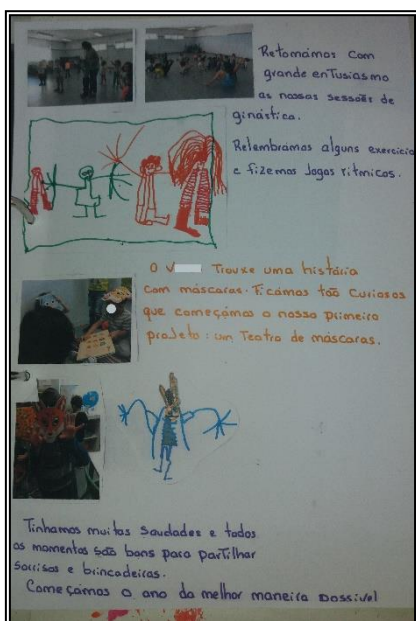 Retomámos com
grande entusiasmo
as nossas sessões de
ginástica.
Relembramos alguns exercício
e fizemos Jogos rítmicos.
O V Trouxe uma história
com máscaras. Ficámos tão curiosos
que começámos o nosso primeiro
projeto: um Teatro de máscaras.
Tínhamos muitas saudades e todos
os momentos são bons para partilhar
sorrisos e brincadeiras.
Começámos o ano da melhor maneira possível